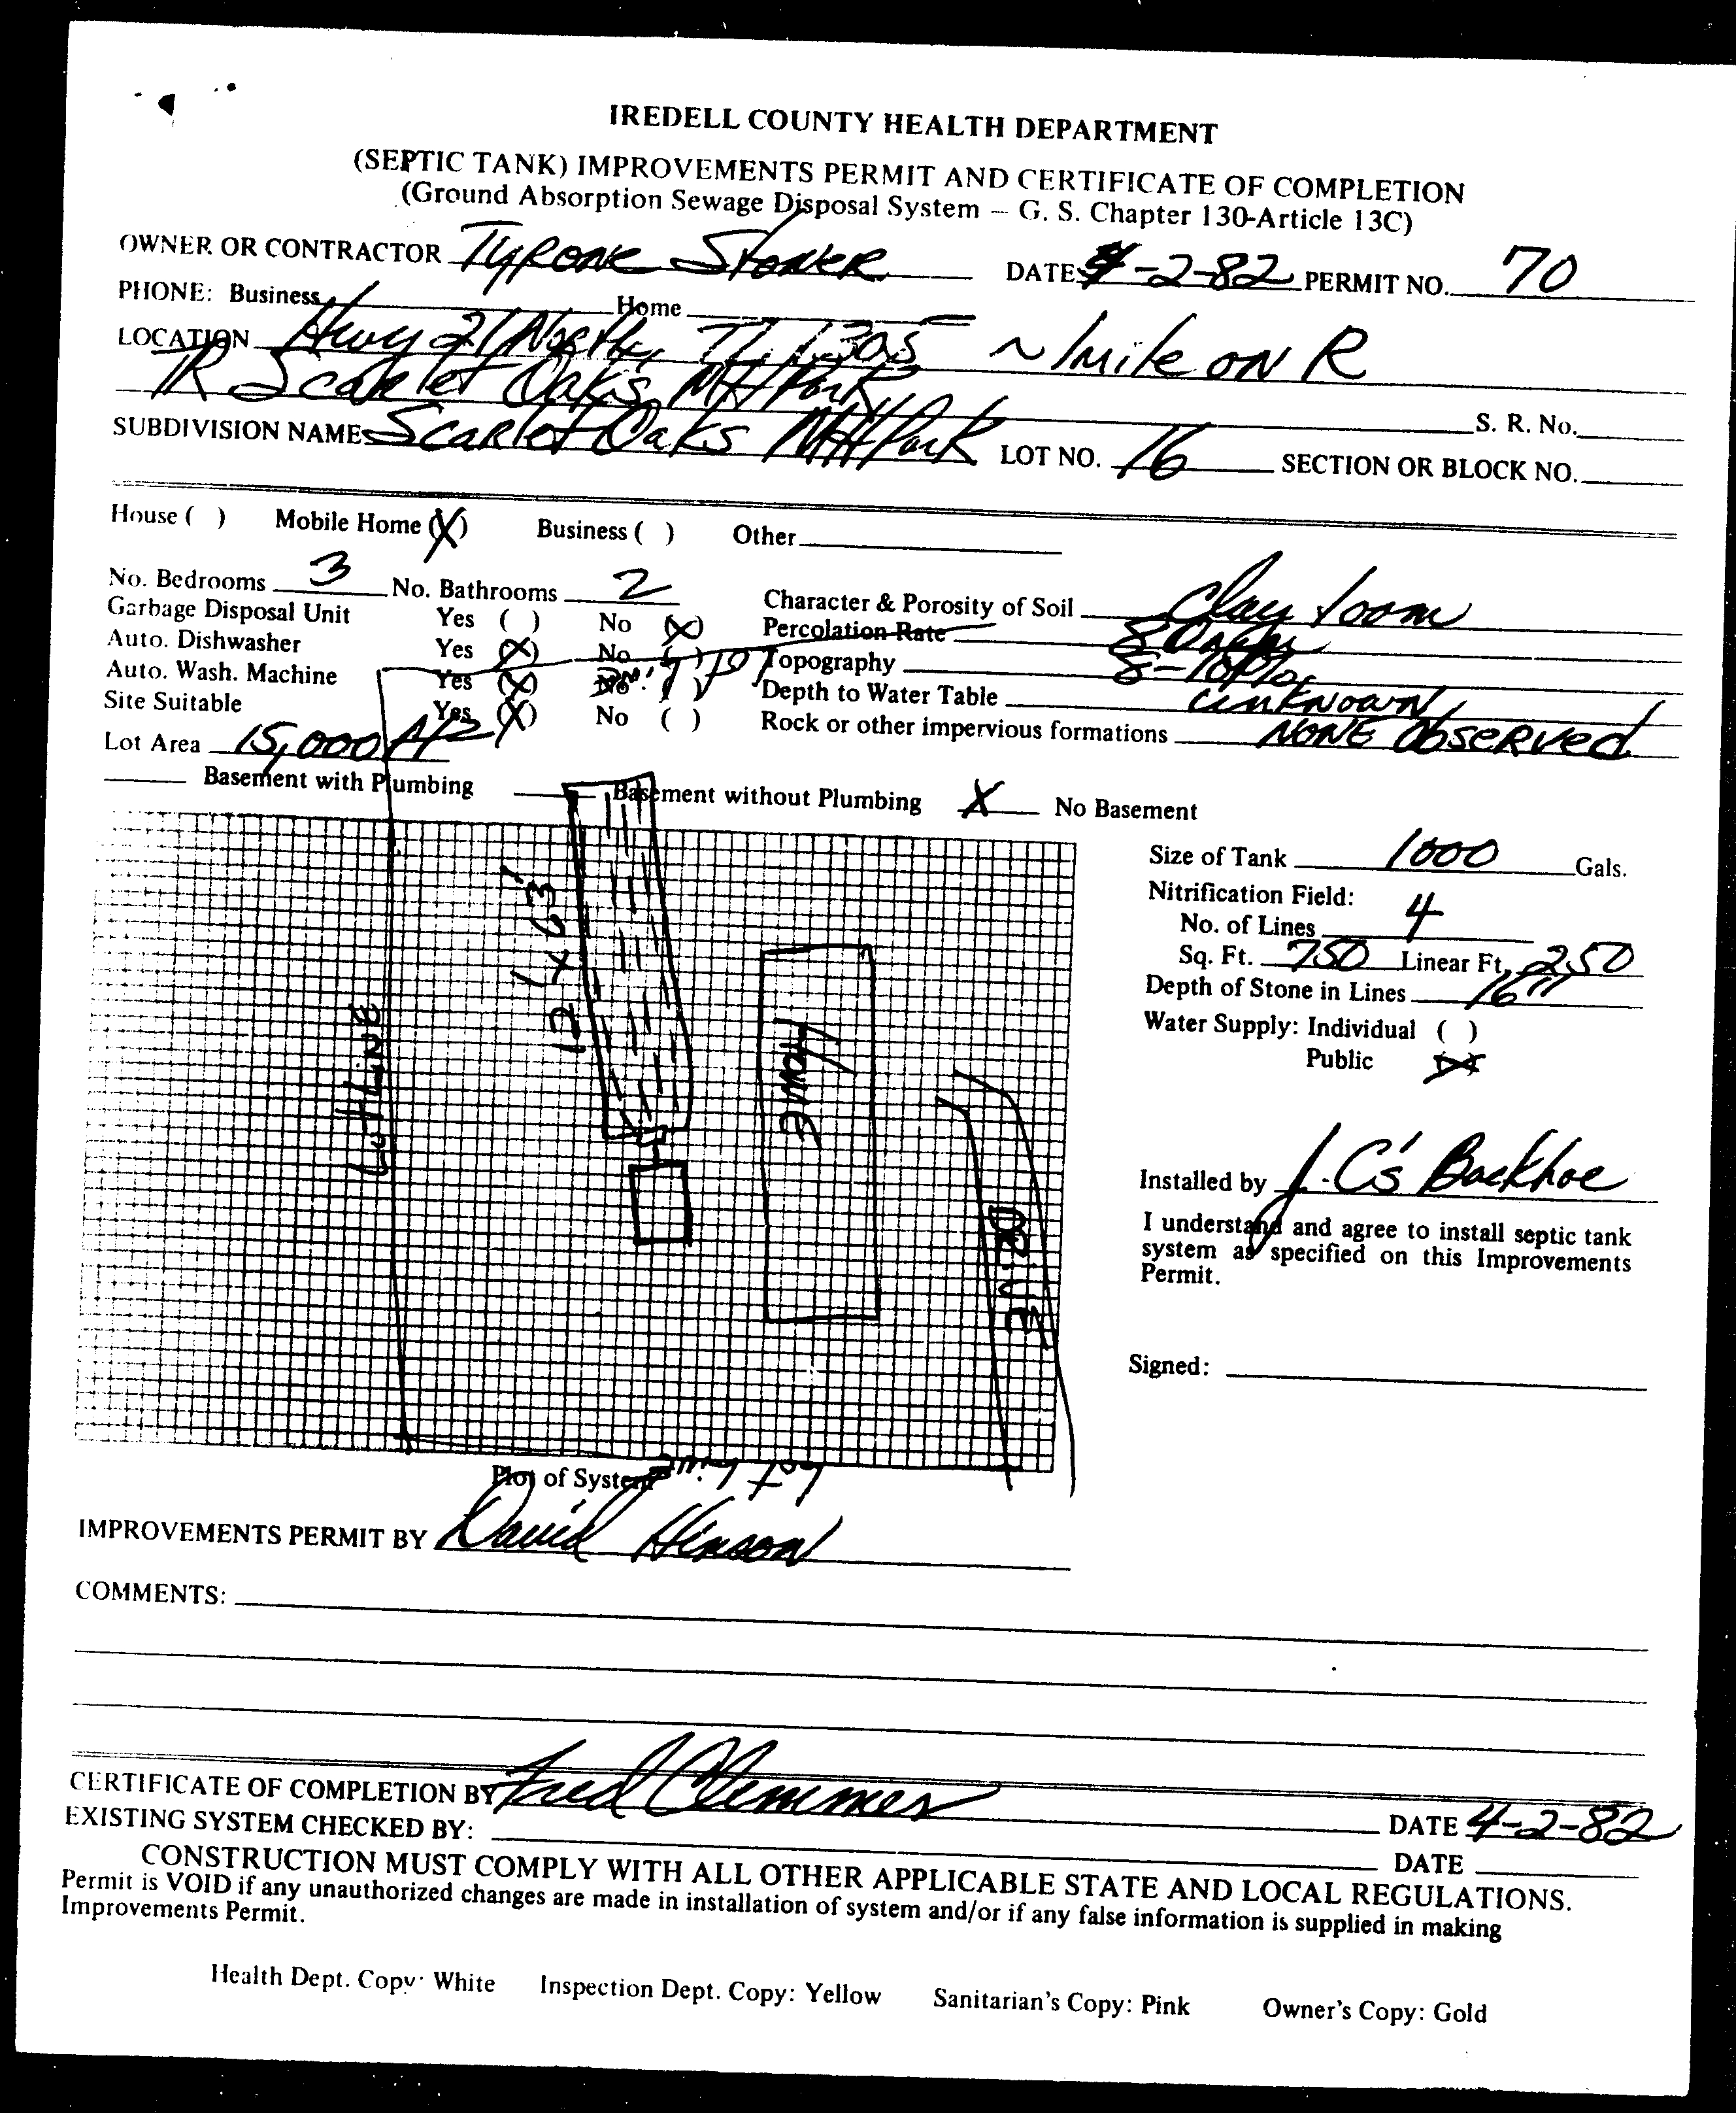 IREDELL COUNTY HEALTH DEPARTMENT
(SEPTIC TANK) IMPROVEMENTS PERMIT AND CERTIFICATE OF COMPLETION
(Ground Absorption Sewage Disposal System — G. S. Chapter 130-Article 13C)
OWNER OR CONTRACTOR Tyrone Stoner DATE 4-2-82 PERMIT NO. 70
PHONE: Business Home
LOCATION Hwy 21 North, TL 1305 ~ 1 mile on R
TR Scarlet Oaks MH Park
S. R. No.
SUBDIVISION NAME Scarlet Oaks MH Park LOT NO. 16 SECTION OR BLOCK NO.
House ( ) Mobile Home (X) Business ( ) Other
No. Bedrooms 3 No. Bathrooms 2 Character & Porosity of Soil Clay Loam
Garbage Disposal Unit Yes ( ) No (X) Percolation Rate
Auto. Dishwasher Yes (X) No ( ) Topography 8-10%
Auto. Wash. Machine Yes (X) No ( ) Depth to Water Table unknown
Site Suitable Yes (X) No ( ) Rock or other impervious formations NONE Observed
Lot Area 15,000
Basement with Plumbing Basement without Plumbing X No Basement
Lot Line
12' x 63'
Home
DRIVE
Lot Line
Lot Line
Size of Tank 1000 Gals.
Nitrification Field:
No. of Lines 4
Sq. Ft. 750 Linear Ft. 250
Depth of Stone in Lines 16"
Water Supply: Individual ( )
Public (X)
Installed by J.C's Backhoe
I understand and agree to install septic tank
system as specified on this Improvements
Permit.
Signed:
Plot of System
IMPROVEMENTS PERMIT BY David Hinson
COMMENTS:
CERTIFICATE OF COMPLETION BY Fred Clemmer DATE 4-2-82
EXISTING SYSTEM CHECKED BY: DATE
CONSTRUCTION MUST COMPLY WITH ALL OTHER APPLICABLE STATE AND LOCAL REGULATIONS.
Permit is VOID if any unauthorized changes are made in installation of system and/or if any false information is supplied in making
Improvements Permit.
Health Dept. Copy: White Inspection Dept. Copy: Yellow Sanitarian's Copy: Pink Owner's Copy: Gold